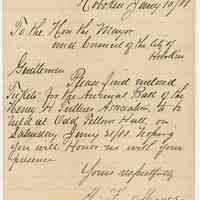 Hoboken Jany 10/88
To the Hon the Mayor
and Council of the City of
Hoboken
Gentlemen
Please find enclosed
Tickets for the Annual Ball of the
Henry A. Association to be
held at Odd Fellows Hall, on
Saturday Jany 21/88 hoping
you will Honor us with your
presence
Yours respectfully